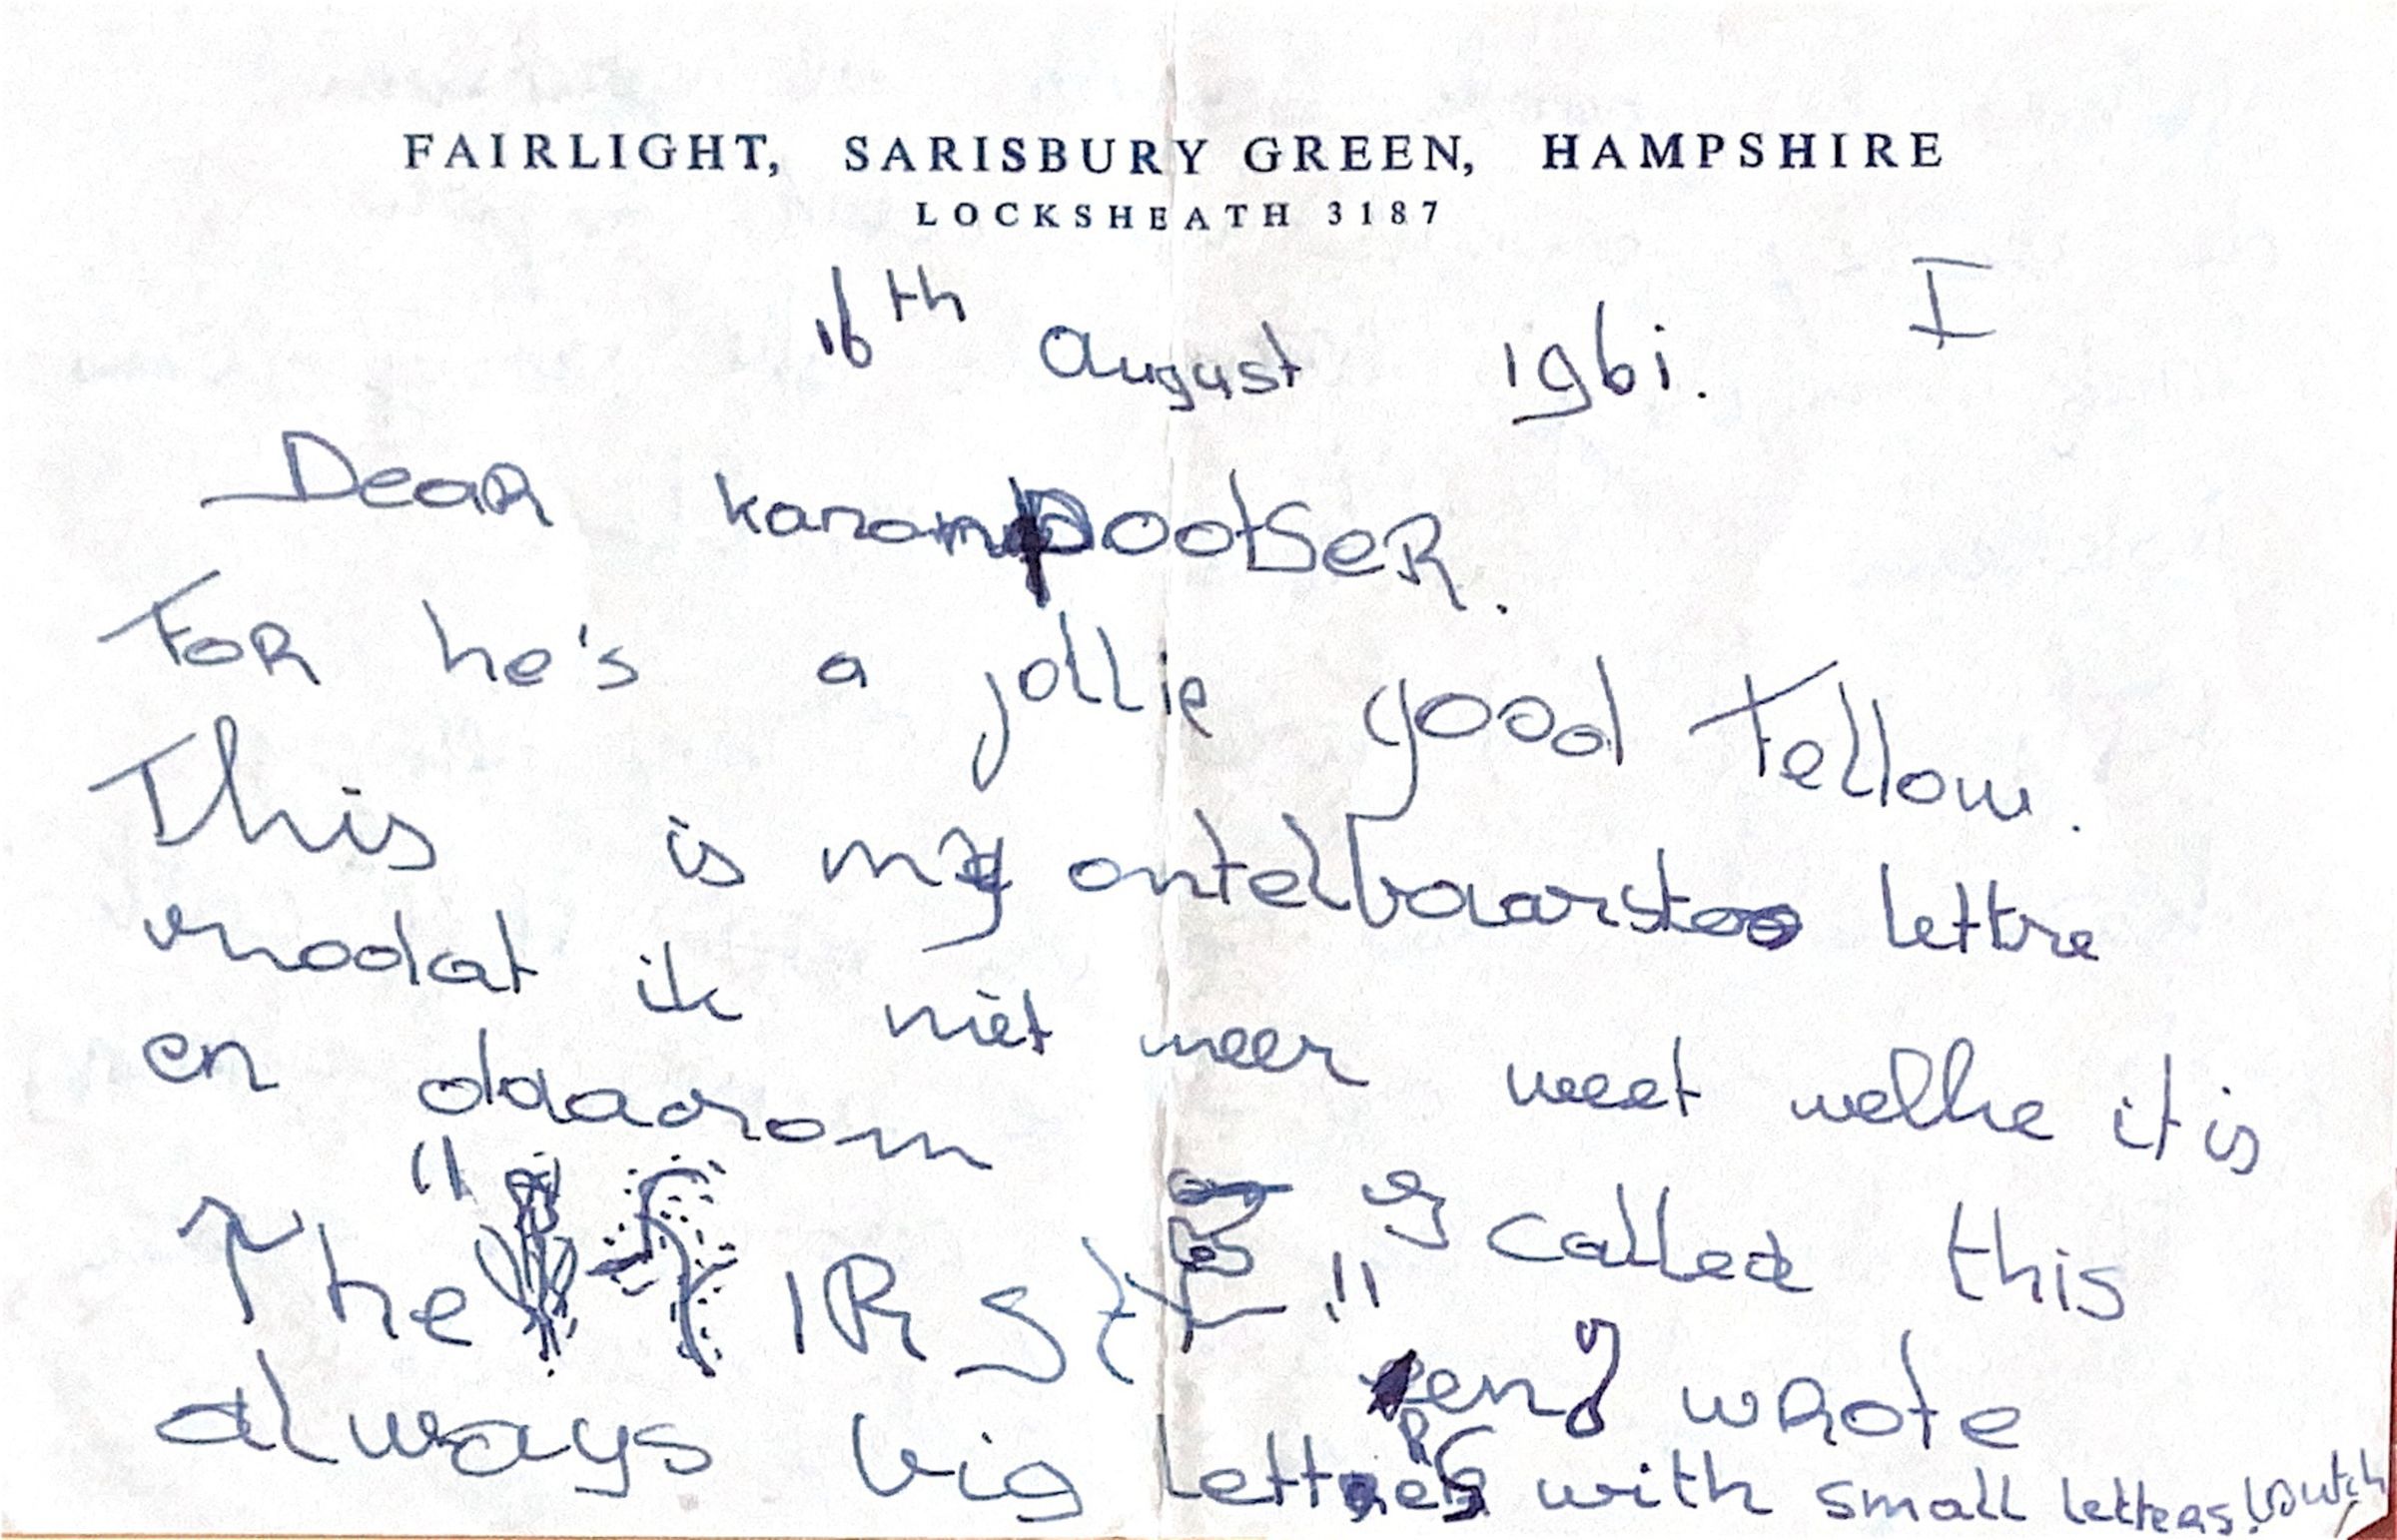 FAIRLIGHT, SARISBURY GREEN, HAMPSHIRE
LOCKSHEATH 3187
I
16th August 1961.
Dear
For he's a jollie good Fellow.
This is my ontelbaarste lettre
omdat ik niet meer weet welke it is
en daarom
"The FIRST" I called this
en I wrote
always big letters with small letters! Dutch